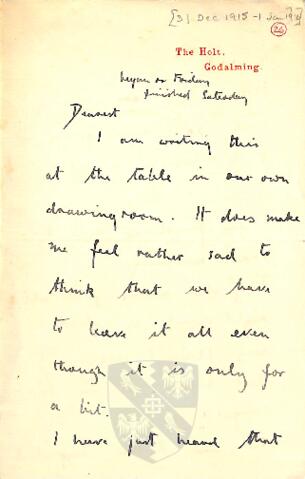 [31 Dec 1915 - 1 Jan 1916]
26
The Holt.
Godalming.
began on Friday
finished Saturday
Dearest
I am writing this
at the table in our own
drawingroom. It does make
me feel rather sad to
think that we have
to leave it all even
though it is only for
a bit.
I have just heard that